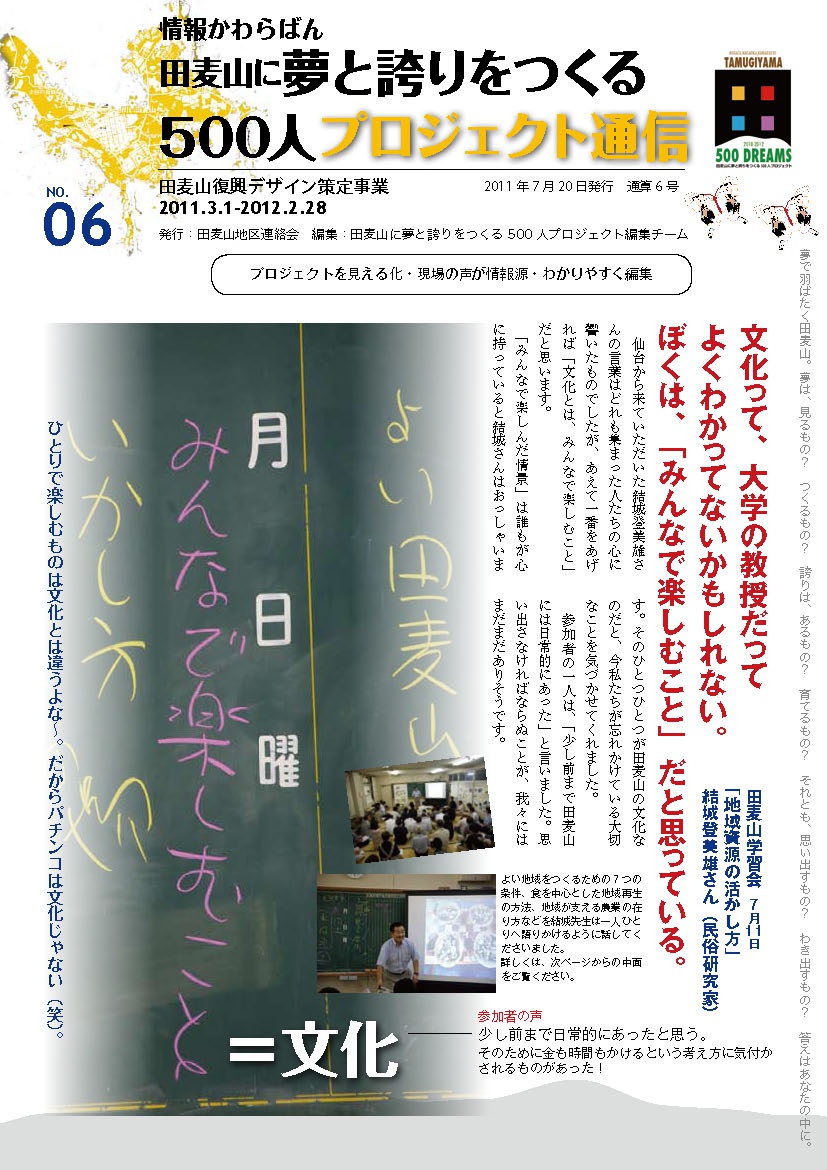 情報かわらばん
田麦山に夢と誇りをつくる
500人プロジェクト通信
TAMUGIYAMA
2010-2012
500 DREAMS
田麦山に夢と誇りをつくる500人プロジェクト
NO.
06
田麦山復興デザイン策定事業
2011.3.1-2012.2.28
2011年7月20日発行　通算6号
発行：田麦山地区連絡会　編集：田麦山に夢と誇りをつくる500人プロジェクト編集チーム
プロジェクトを見える化・現場の声が情報源・わかりやすく編集
夢で羽ばたく田麦山。夢は、見るもの？　つくるもの？　誇りは、あるもの？　育てるもの？　それとも、思い出すもの？　わき出すもの？　答えはあなたの中に。
文化って、大学の教授だって
よくわかってないかもしれない。
ぼくは、「みんなで楽しむこと」だと思っている。
田麦山学習会　7月11日
「地域資源の活かし方」
結城登美雄さん（民俗研究家）
仙台から来ていただいた結城登美雄さ
んの言葉はどれも集まった人たちの心に
響いたものでしたが、あえて一番をあげ
れば「文化とは、みんなで楽しむこと」
だと思います。
「みんなで楽しんだ情景」は誰もが心
に持っていると結城さんはおっしゃいま
す。そのひとつひとつが田麦山の文化な
のだと、今私たちが忘れかけている大切
なことを気づかせてくれました。
参加者の一人は、「少し前まで田麦山
には日常的にあった」と言いました。思
い出さなければならぬことが、我々には
まだまだありそうです。
よい田麦山
月　日　曜
みんなで楽しむこと
いかし方
ひとりで楽しむものは文化とは違うよな～。だからパチンコは文化じゃない（笑）。
よい地域をつくるための7つの
条件、食を中心とした地域再生
の方法、地域が支える農業の在
り方などを結城先生は一人ひと
りへ語りかけるように話してく
ださいました。
詳しくは、次ページからの中面
をご覧ください。
＝文化
参加者の声
少し前まで日常的にあったと思う。
そのために金も時間もかけるという考え方に気付か
されるものがあった！